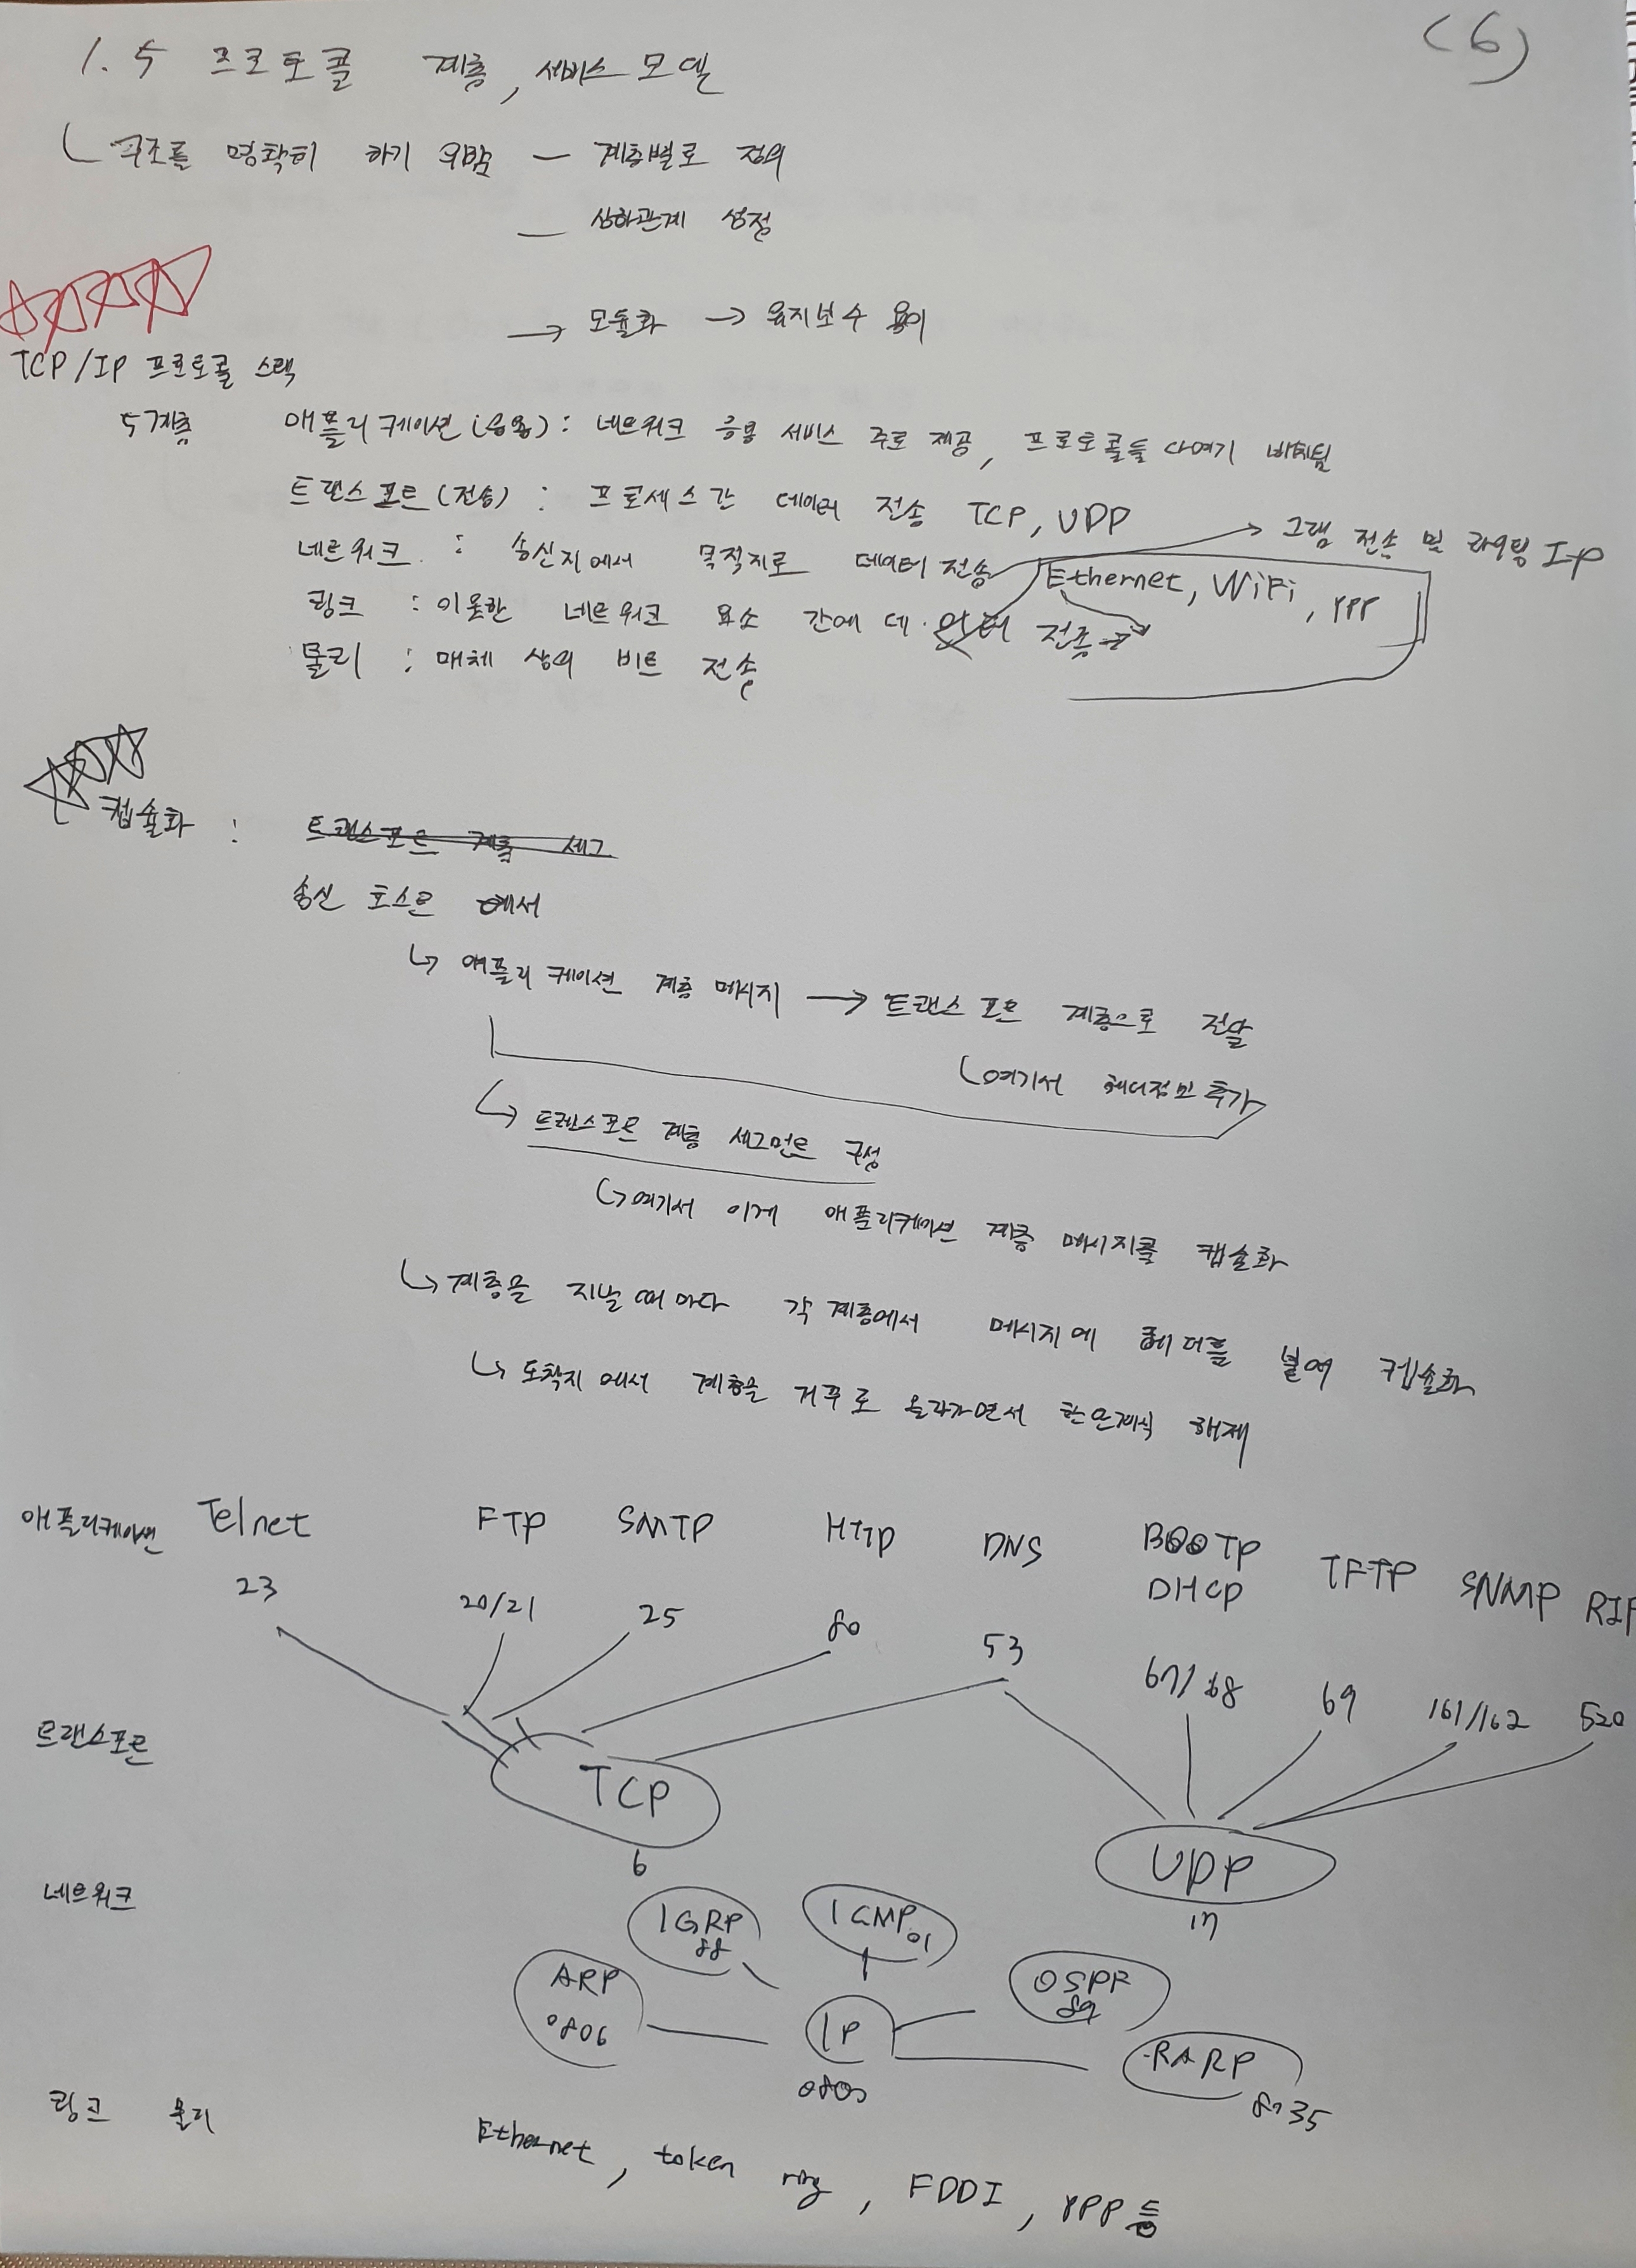 (6)
1.5 프로토콜 계층, 서비스 모델
구조를 명확히 하기 위함 — 계층별로 정의
— 상하관계 설정
→ 모듈화 → 유지보수 용이
TCP/IP 프로토콜 스택
5계층 애플리케이션(응용) : 네트워크 응용 서비스 주로 제공, 프로토콜들 다 여기
트랜스포트(전송) : 프로세스간 데이터 전송 TCP, UDP
네트워크 : 송신지에서 목적지로 데이터 전송 → 그램 전송 및 라우팅 IP
링크 : 이웃한 네트워크 요소 간에 데이터 전송 Ethernet, WiFi, PPP
물리 : 매체 상의 비트 전송
캡슐화 : 트랜스포트 계층 세그
송신 호스트에서
↳ 애플리케이션 계층 메시지 → 트랜스포트 계층으로 전달
여기서 헤더정보 추가
↳ 트랜스포트 계층 세그먼트 구성
↳ 여기서 이게 애플리케이션 계층 메시지를 캡슐화
↳ 계층을 지날 때마다 각 계층에서 메시지에 헤더를 붙여 캡슐화
↳ 도착지에서 계층을 거꾸로 올라가면서 한단계씩 해제
애플리케이션 Telnet FTP SMTP HTTP DNS BOOTP DHCP TFTP SNMP RIP
23 20/21 25 80 53 67/68 69 161/162 520
트랜스포트 TCP UDP
6 17
네트워크 IGRP 88 ICMP 01
ARP 0806 IP 0800 OSPF 89 RARP 8035
링크 물리 Ethernet, token ring, FDDI, PPP 등